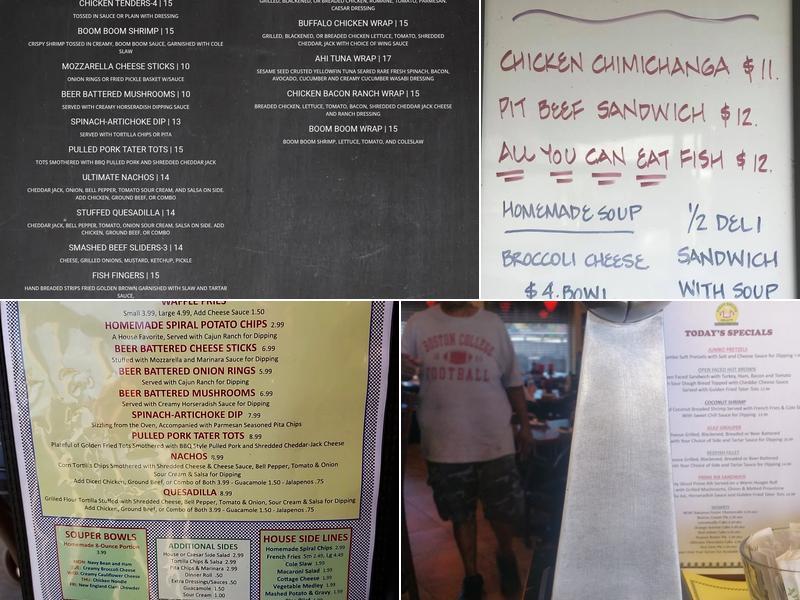 CHICKEN TENDERS-4 | 15
TOSSED IN SAUCE OR PLAIN WITH DRESSING
BOOM BOOM SHRIMP | 15
CRISPY SHRIMP TOSSED IN CREAMY, BOOM BOOM SAUCE, GARNISHED WITH COLE
SLAW
MOZZARELLA CHEESE STICKS | 10
ONION RINGS OR FRIED PICKLE BASKET W/SAUCE
BEER BATTERED MUSHROOMS | 10
SERVED WITH CREAMY HORSERADISH DIPPING SAUCE
SPINACH-ARTICHOKE DIP | 13
SERVED WITH TORTILLA CHIPS OR PITA
PULLED PORK TATER TOTS | 15
TOTS SMOTHERED WITH BBQ PULLED PORK AND SHREDDED CHEDDAR JACK
ULTIMATE NACHOS | 14
CHEDDAR JACK, ONION, BELL PEPPER, TOMATO SOUR CREAM, AND SALSA ON SIDE.
ADD CHICKEN, GROUND BEEF, OR COMBO
STUFFED QUESADILLA | 14
CHEDDAR JACK, BELL PEPPER, TOMATO, ONION, SOUR CREAM, SALSA ON SIDE. ADD
CHICKEN, GROUND BEEF, OR COMBO
SMASHED BEEF SLIDERS-3 | 14
CHEESE, GRILLED ONIONS, MUSTARD, KETCHUP, PICKLE
FISH FINGERS | 15
HAND BREADED STRIPS FRIED GOLDEN BROWN GARNISHED WITH SLAW AND TARTAR
SAUCE,
GRILLED, BLACKENED, OR BREADED CHICKEN, ROMAINE, TOMATO, PARMESAN,
CAESAR DRESSING
BUFFALO CHICKEN WRAP | 15
GRILLED, BLACKENED, OR BREADED CHICKEN LETTUCE, TOMATO, SHREDDED
CHEDDAR, JACK WITH CHOICE OF WING SAUCE
AHI TUNA WRAP | 17
SESAME SEED CRUSTED YELLOWFIN TUNA SEARED RARE FRESH SPINACH, BACON,
AVOCADO, CUCUMBER AND CREAMY CUCUMBER WASABI DRESSING
CHICKEN BACON RANCH WRAP | 15
BREADED CHICKEN, LETTUCE, TOMATO, BACON, SHREDDED CHEDDAR JACK CHEESE
AND RANCH DRESSING
BOOM BOOM WRAP | 15
BOOM BOOM SHRIMP, LETTUCE, TOMATO, AND COLESLAW
CHICKEN CHIMICHANGA $11.
PIT BEEF SANDWICH $12.
ALL YOU CAN EAT FISH $12.
HOMEMADE SOUP
BROCCOLI CHEESE
$4. BOWL
1/2 DELI
SANDWICH
WITH SOUP
WAFFLE FRIES
Small 3.99, Large 4.99, Add Cheese Sauce 1.50
HOMEMADE SPIRAL POTATO CHIPS 2.99
A House Favorite, Served with Cajun Ranch for Dipping
BEER BATTERED CHEESE STICKS 6.99
Stuffed with Mozzarella and Marinara Sauce for Dipping
BEER BATTERED ONION RINGS 5.99
Served with Cajun Ranch for Dipping
BEER BATTERED MUSHROOMS 6.99
Served with Creamy Horseradish Sauce for Dipping
SPINACH-ARTICHOKE DIP 7.99
Sizzling from the Oven, Accompanied with Parmesan Seasoned Pita Chips
PULLED PORK TATER TOTS 8.99
Plateful of Golden Fried Tots Smothered with BBQ Style Pulled Pork and Shredded Cheddar-Jack Cheese
NACHOS 8.99
Corn Tortilla Chips Smothered with Shredded Cheese & Cheese Sauce, Bell Pepper, Tomato & Onion
Sour Cream & Salsa for Dipping
Add Diced Chicken, Ground Beef, or Combo of Both 3.99 - Guacamole 1.50 - Jalapenos .75
QUESADILLA 8.99
Grilled Flour Tortilla Stuffed with Shredded Cheese, Bell Pepper, Tomato & Onion, Sour Cream & Salsa for Dipping
Add Chicken, Ground Beef, or Combo of Both 3.99 - Guacamole 1.50 - Jalapenos .75
SOUPER BOWLS
Homemade 8-Ounce Portion
3.99
MON: Navy Bean and Ham
TUE: Creamy Broccoli Cheese
WED: Creamy Cauliflower Cheese
THU: Chicken Noodle
FRI: New England Clam Chowder
ADDITIONAL SIDES
House or Caesar Side Salad 2.99
Tortilla Chips & Salsa 2.99
Pita Chips & Marinara 2.99
Dinner Roll .50
Extra Dressing/Sauces .50
Guacamole 1.50
Sour Cream 1.00
HOUSE SIDE LINES
Homemade Spiral Chips 2.99
French Fries Sm 2.49, Lg 4.49
Cole Slaw 1.99
Macaroni Salad 1.99
Cottage Cheese 1.99
Vegetable Medley 1.99
Mashed Potato & Gravy 1.99
BOSTON COLLEGE
FOOTBALL
TODAY'S SPECIALS
JUMBO PRETZELS
Salt Pretzels with Salt and Cheese Sauce for Dipping
OPEN FACED HOT BROWN
Faced Sandwich with Turkey, Ham, Bacon and Tomato
Sour Dough Bread Topped with Cheddar Cheese Sauce
Served with Golden Fried Tater Tots
COCONUT SHRIMP
Coconut Breaded Shrimp Served with French Fries & Cole
With Sweet Chili Sauce for Dipping
GULF GROUPER
REDFISH FILLET
PRIME RIB SANDWICH